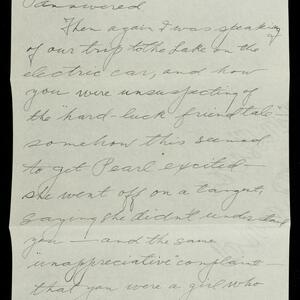 I answered.
Then again I was speaking
of our trip to the Lake on the
electric car, and how
you were unsuspecting of
the "hard-luck friend tale" —
somehow this seemed
to get Pearl excited —
she went off on a tangent,
saying she didn't understand
you — and the same
"unappreciative" complaint —
that you were a girl who